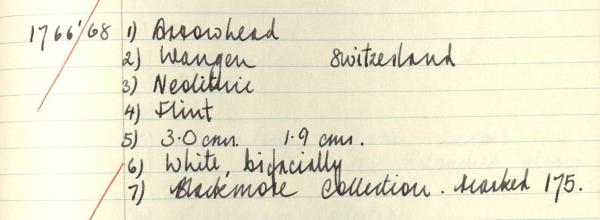 1766'/68 1) Arrowhead
2) Wangen Switzerland
3) Neolithic
4) Flint
5) 3.0 cms. 1.9 cms.
6) White, bifacially
7) Blackmore Collection. Marked 175.